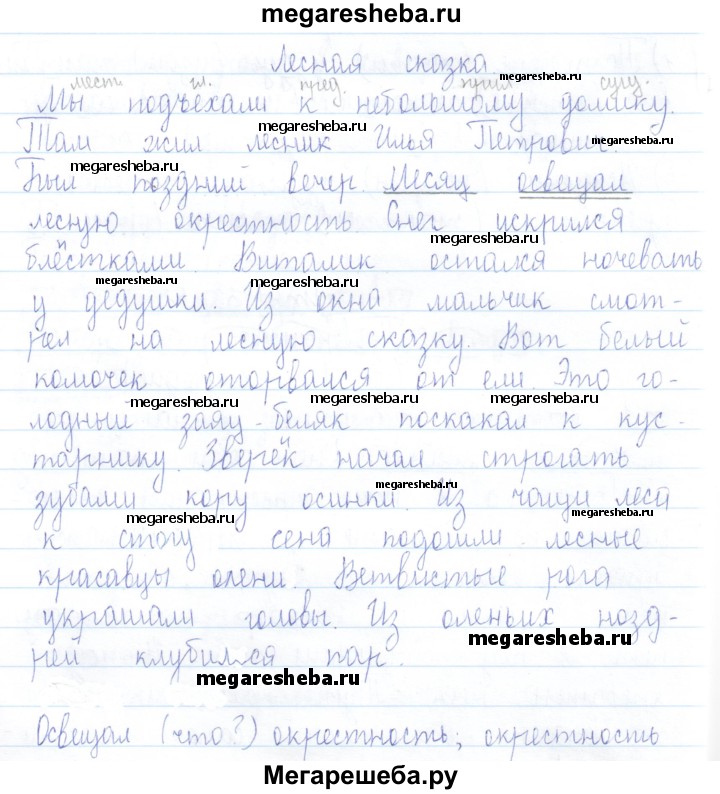 megaresheba.ru
Лесная сказка
megaresheba.ru
мест. гл. пред. прил. сущ.
Мы подъехали к небольшому домику.
megaresheba.ru megaresheba.ru
Там жил лесник Илья Петрович.
megaresheba.ru
Был поздний вечер. Месяц освещал
лесную окрестность. Снег искрился
megaresheba.ru
блёстками. Виталик остался ночевать
megaresheba.ru megaresheba.ru
у дедушки. Из окна мальчик смот-
рел на лесную сказку. Вот белый
комочек оторвался от ели. Это го-
megaresheba.ru megaresheba.ru megaresheba.ru
лодный заяц-беляк поскакал к кус-
тарнику. Зверёк начал строгать
зубами кору осинки. Из чащи леса
megaresheba.ru
megaresheba.ru megaresheba.ru
к стогу сена подошли лесные
красавцы олени. Ветвистые рога
украшали головы. Из оленьих нозд-
megaresheba.ru
рей клубился пар.
megaresheba.ru
Освещал (что?) окрестность; окрестность
Мегарешеба.ру